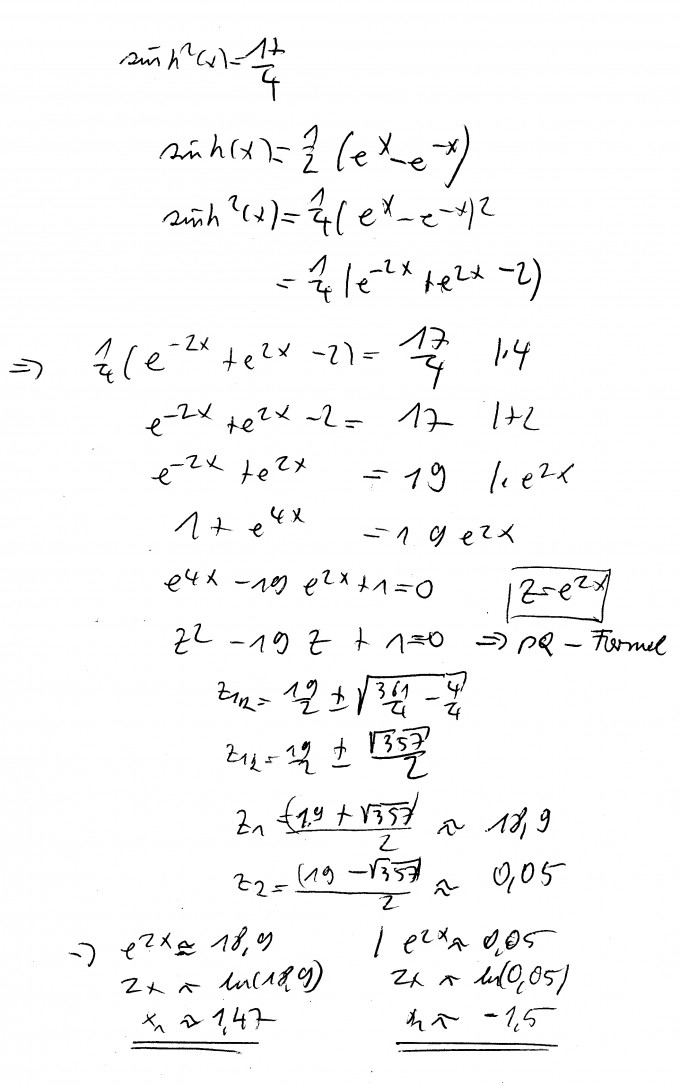 sinh²(x)=17/4
sinh(x)=1/2 (e^x-e^-x)
sinh²(x)=1/4(e^x-e^-x)²
=1/4(e^-2x+e^2x-2)
⇒ 1/4(e^-2x+e^2x-2)=17/4 |·4
e^-2x+e^2x-2=17 |+2
e^-2x+e^2x=19 |·e^2x
1+e^4x=19e^2x
e^4x-19e^2x+1=0 z=e^2x
z²-19z+1=0 ⇒ PQ-Formel
z1/2=19/2±√(361/4-4/4)
z1/2=19/2±√357/2
z1=(19+√357)/2≈18,9
z2=(19-√357)/2≈0,05
⇒ e^2x≈18,9 | e^2x≈0,05
2x≈ln(18,9) 2x≈ln(0,05)
x1≈1,47 x2≈-1,5